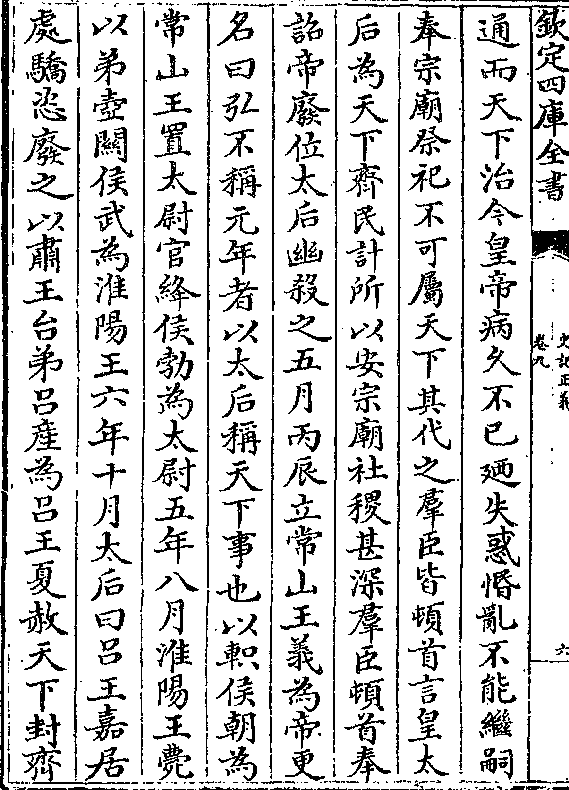 欽定四庫全書
史記正義
卷九
六
通而天下治今皇帝病久不已廼失惑惛亂不能繼嗣
奉宗廟祭祀不可屬天下其代之羣臣皆頓首言皇太
后為天下齊民計所以安宗廟社稷甚深羣臣頓首奉
詔帝廢位太后幽殺之五月丙辰立常山王義為帝更
名曰弘不稱元年者以太后稱天下事也以軹侯朝為
常山王置太尉官絳侯勃為太尉五年八月淮陽王薨
以弟壺關侯武為淮陽王六年十月太后曰呂王嘉居
處驕恣廢之以肅王台弟呂產為呂王夏赦天下封齊